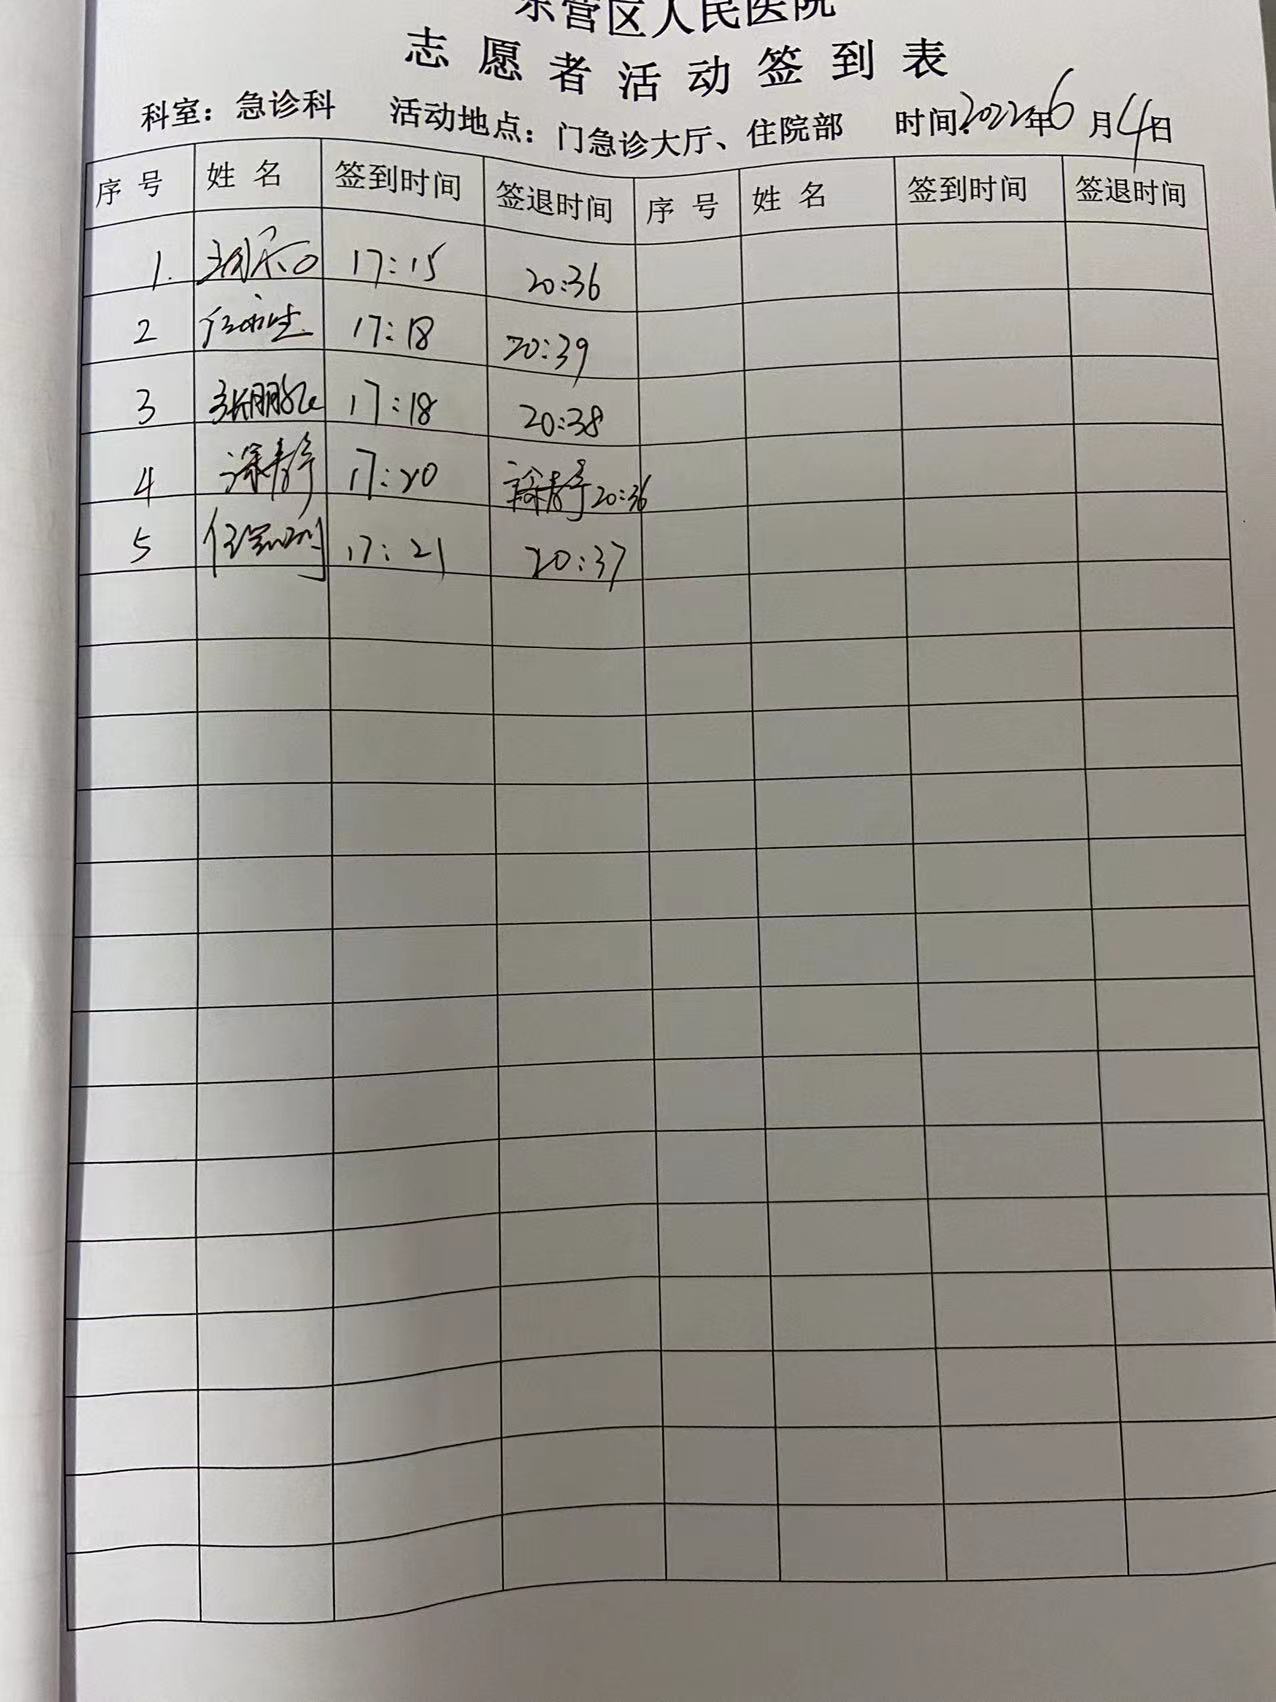 东营区人民医院
志愿者活动签到表
科室：急诊科 活动地点：门急诊大厅、住院部 时间:2022年6月4日
序号 姓名 签到时间 签退时间 序号 姓名 签到时间 签退时间
1. 17:15 20:36
2 17:18 20:39
3 张鹏 17:18 20:38
4 涂静 17:20 涂静 20:36
5 17:21 20:37